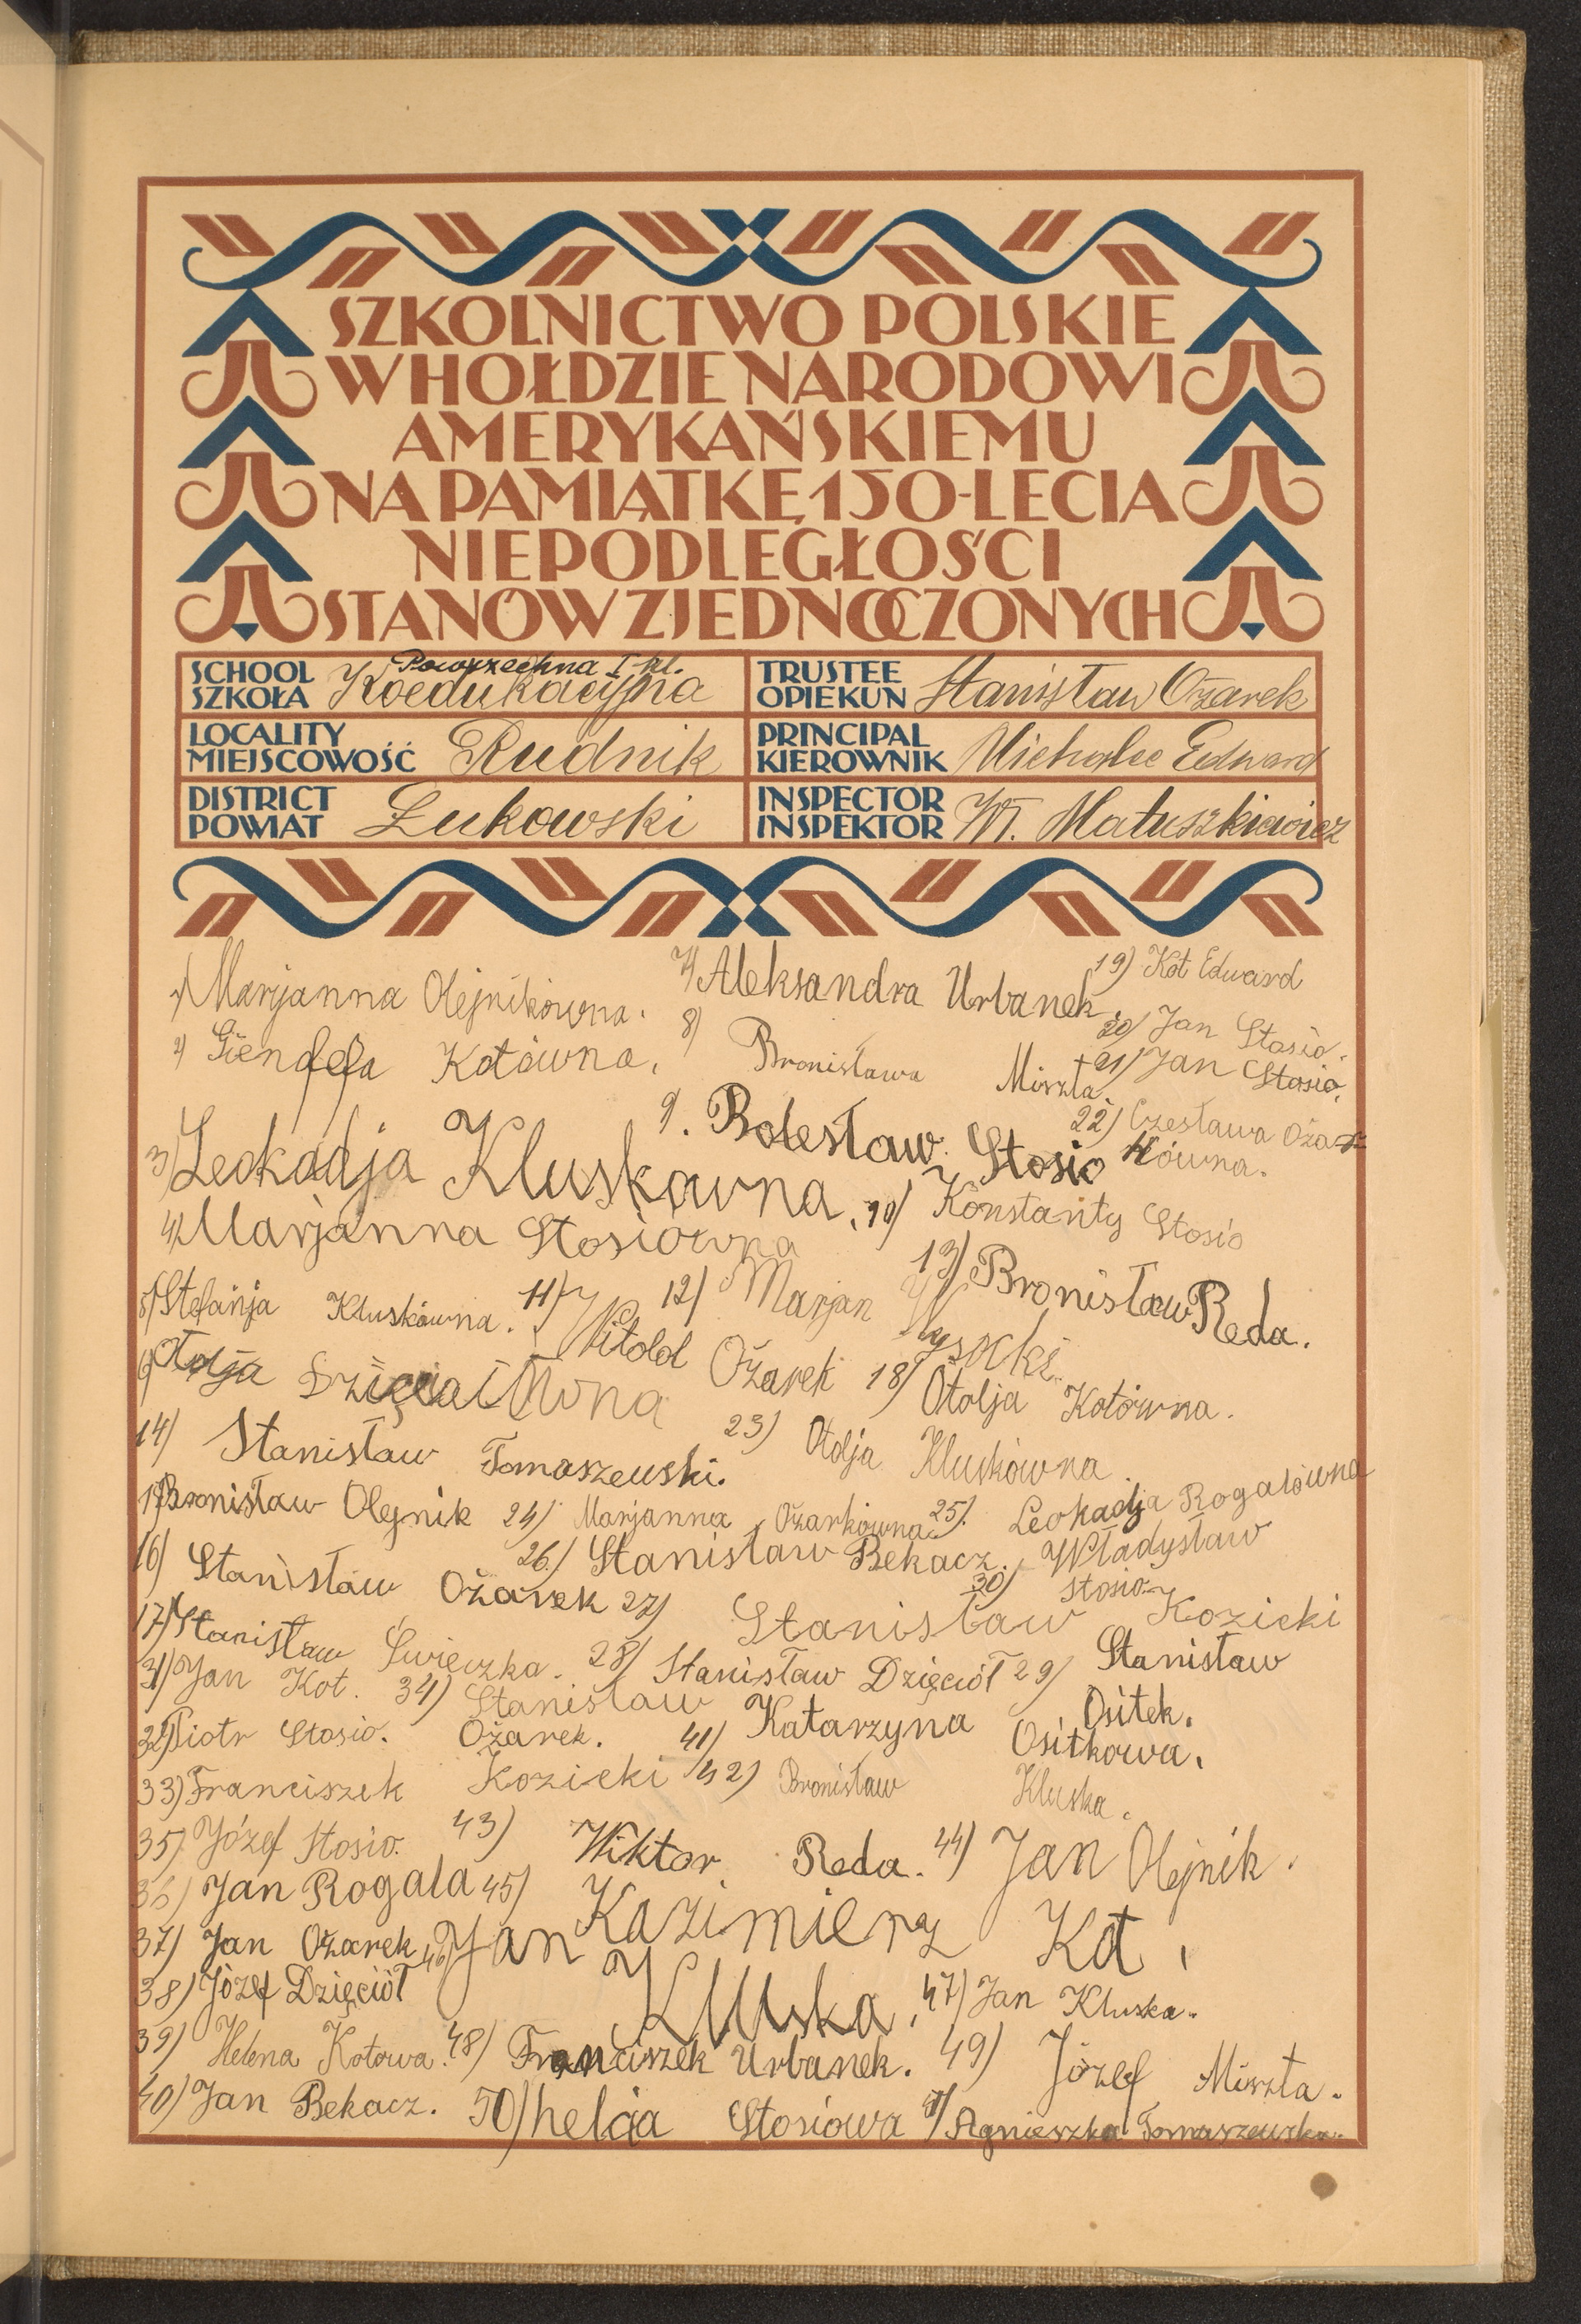 SZKOLNICTWO POLSKIE
W HOŁDZIE NARODOWI
AMERYKAŃSKIEMU
NA PAMIĄTKĘ 150-LECIA
NIEPODLEGŁOŚCI
STANÓW ZJEDNOCZONYCH
SCHOOL
SZKOŁA
Powszechna I kl.
Koedukacyjna
TRUSTEE
OPIEKUN
Stanisław Ożarek
LOCALITY
MIEJSCOWOŚĆ
Rudnik
PRINCIPAL
KIEROWNIK
Michalec Edward
DISTRICT
POWIAT
Łukowski
INSPECTOR
INSPEKTOR
Wł. Matuszkiewicz
1) Marjanna Olejnikówna.
2) Gienofefa Kotówna.
3) Leokadja Kluskawna.
4) Marjanna Stosiówna
5) Stefanja Kluskówna.
6) Otolja
7) Aleksandra Urbanek.
8) Bronisława Miszta.
9. Bolesław Stosio
10) Konstanty Stosio
11) Witold Ożarek
12) Marjan Wysocki.
13) Bronisław Reda.
14) Stanisław Tomaszewski.
15) Bronisław Olejnik
16) Stanisław Ożarek
17) Stanisław Świeczka.
18) Otolja Kotówna.
19) Kot Edward
20) Jan Stosio.
21) Jan Stosio.
22) Czesława Ożar
kówna.
23) Otolja Kluskówna.
24) Marjanna Ożarkówna.
25). Leokadja Rogalówna
26.) Stanisław Bekacz.
27) Stanisław Kozicki
28) Stanisław Dzięciół
29) Stanisław
Ositek.
30) Władysław
Stosio
31) Jan Kot.
32) Piotr Stosio.
33) Franciszek Kozicki
34) Stanisław
Ożarek.
35) Józef Stosio.
36) Jan Rogala
37) Jan Ożarek
38) Józef Dzięciół
39) Helena Kotowa.
40) Jan Bekacz.
41) Katarzyna Ositkowa.
42) Bronisław Kluska.
43) Wiktor Reda.
44) Jan Olejnik.
45) Kazimierz Kot.
46) Jan Kluska.
47) Jan Kluska.
48) Franciszek Urbanek.
49) Józef Miszta.
50) helaja Stosiowa
51) Agnieszka Tomaszewska.